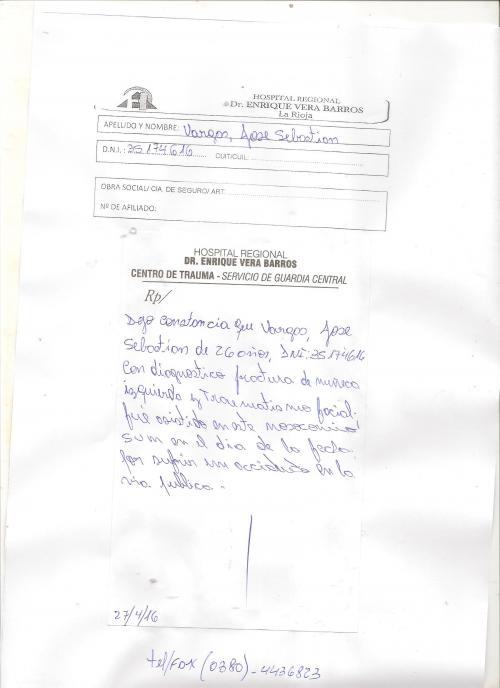 HOSPITAL REGIONAL
Dr. ENRIQUE VERA BARROS
La Rioja
APELLIDO Y NOMBRE: Vargas, Jose Sebastian
D.N.I.: 35174616 CUIT/CUIL:
OBRA SOCIAL/ CIA. DE SEGURO/ ART:
Nº DE AFILIADO:
HOSPITAL REGIONAL
DR. ENRIQUE VERA BARROS
CENTRO DE TRAUMA - SERVICIO DE GUARDIA CENTRAL
Rp/
Dejo constancia que Vargas, Jose
Sebastian de 26 años, DNI: 35174616
Con diagnostico fractura de muñeca
izquierda y Traumatismo facial.
fue asistido en este nosocomio
en el dia de la fecha
por sufrir un accidente en la
via publica.-
27/4/16
tel/FAX (0380)-4436823